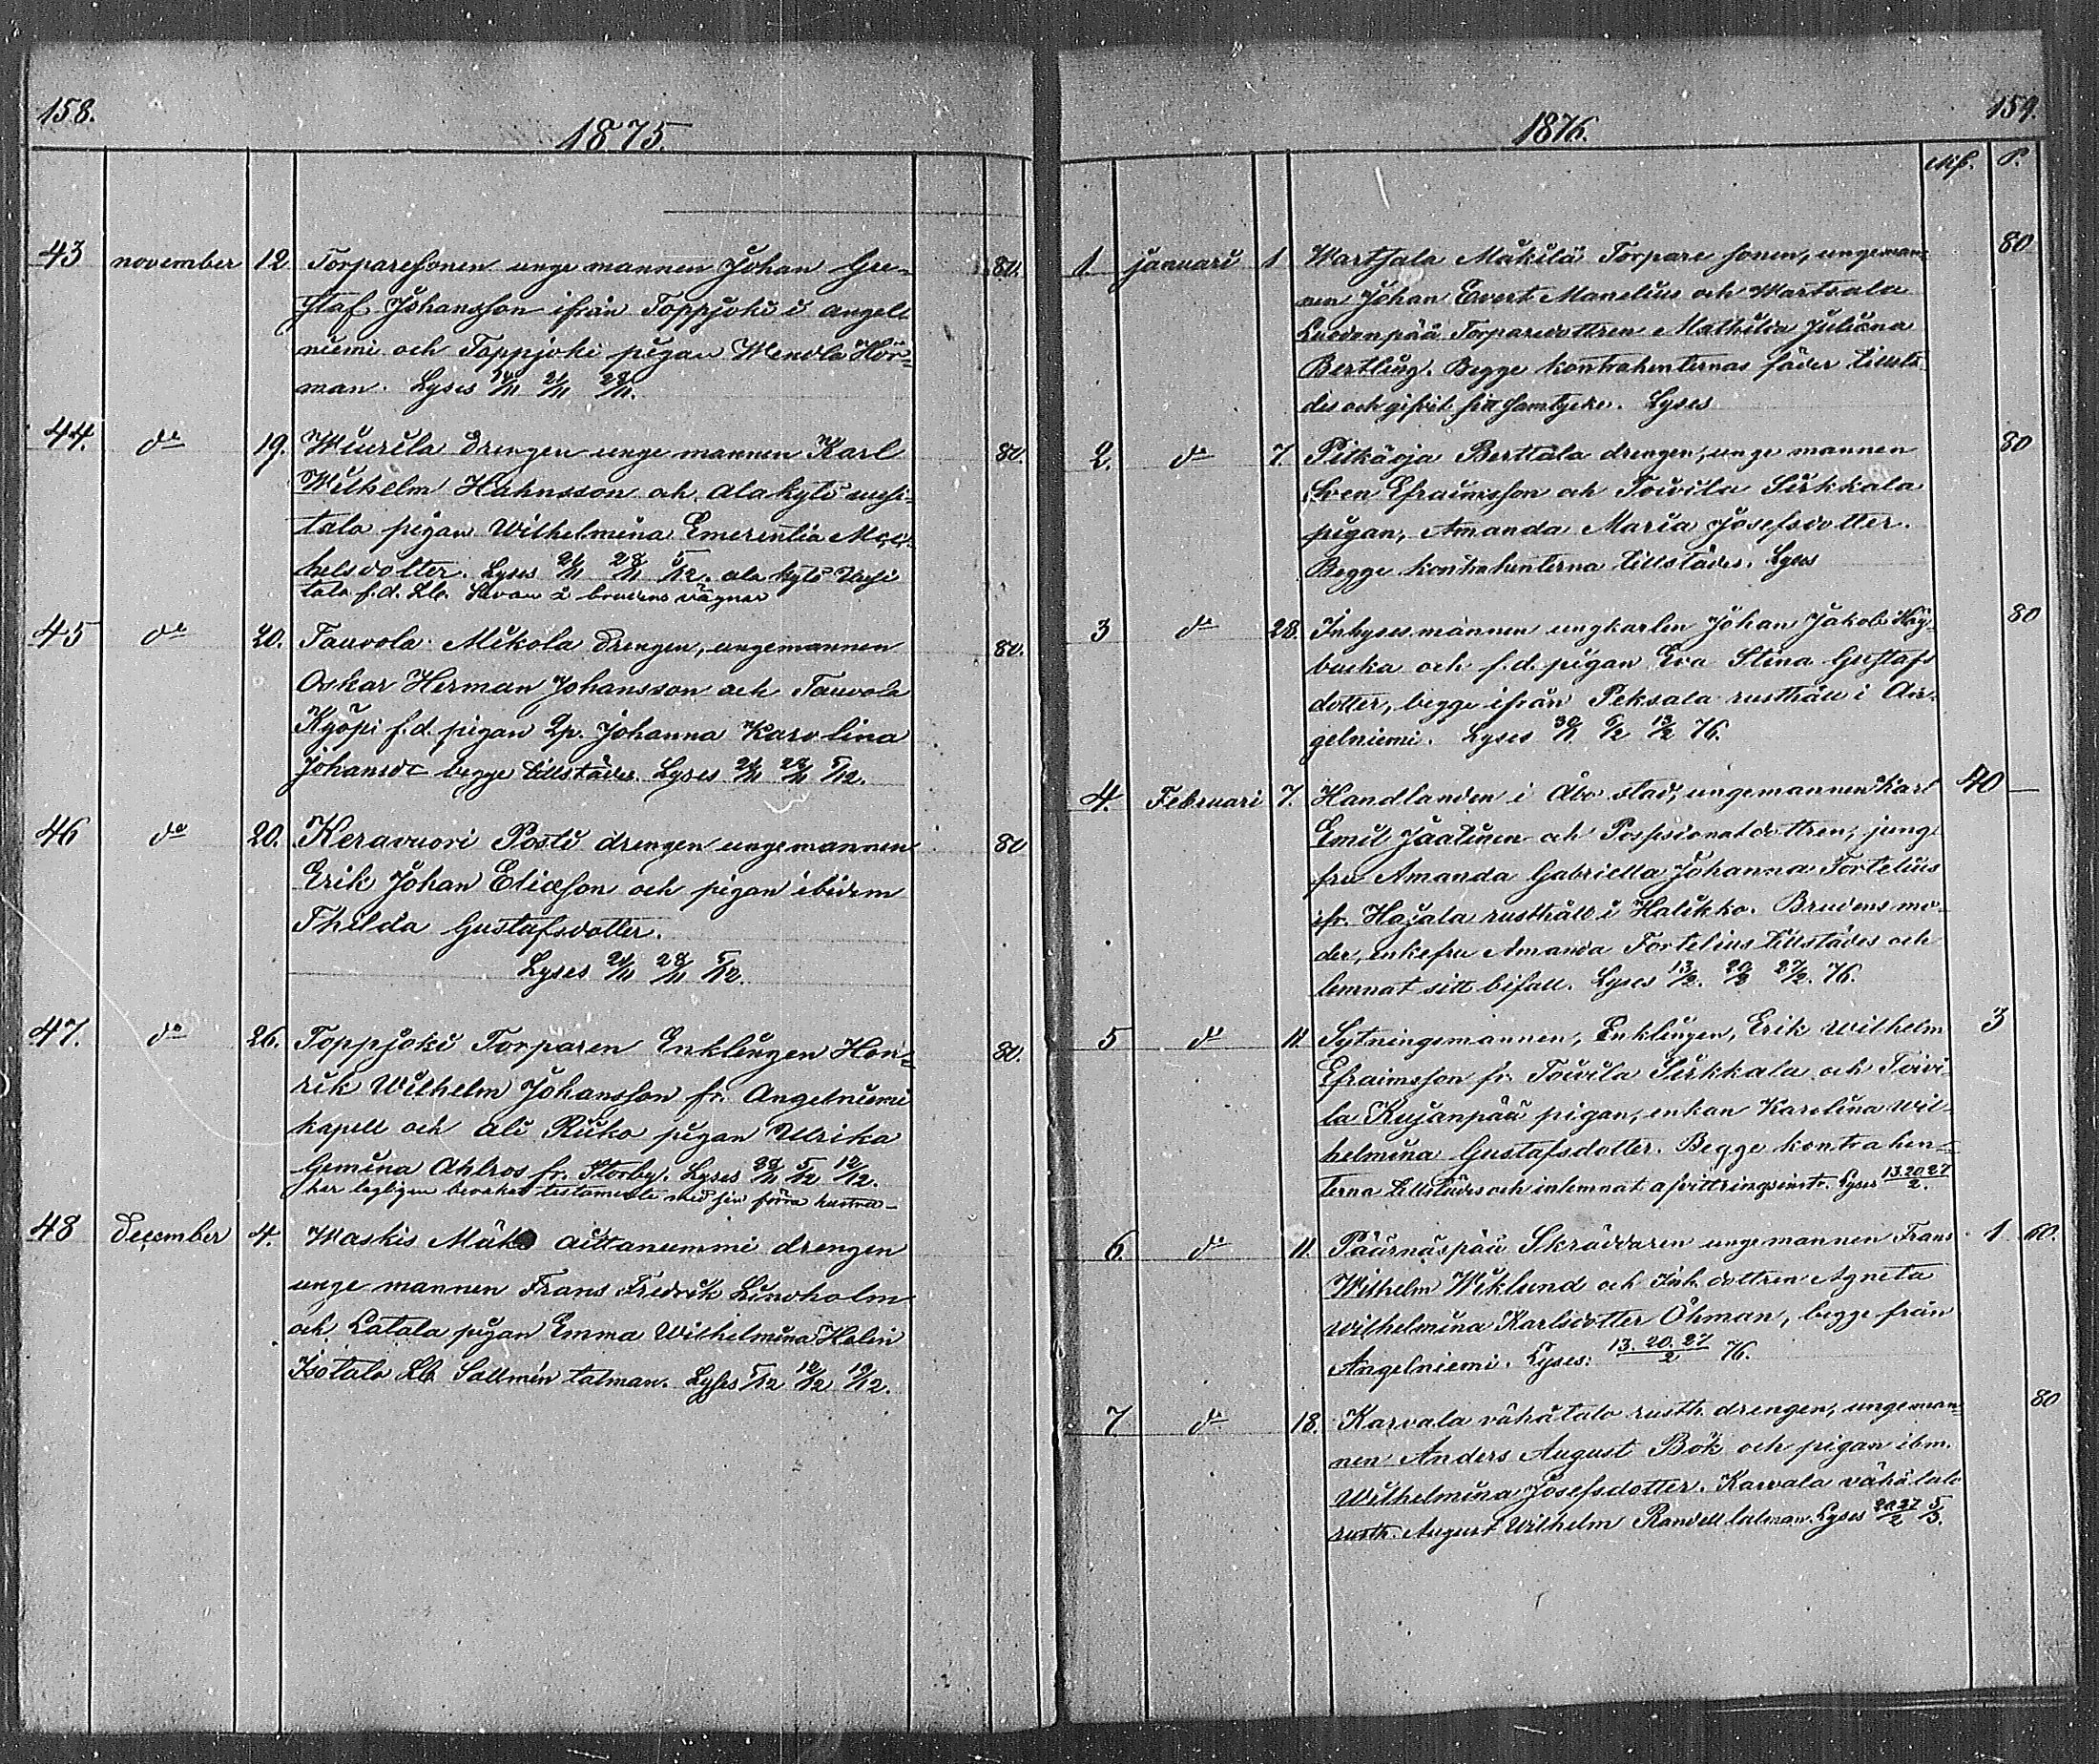 158.
1875.
43 november 12 Torparesonen unge mannen Johan Gu-
staf Johansson ifrån Toppjoki i angel
niemi och Toppjoki pigan Wendla Hör-
man. Lyses 14/11 21/11 28/11.
80.
44. do 19. Wiurila drengen unge mannen Karl
Wilhelm Hahnsson och alakylö uusi-
talo pigan Wilhelmina Emerentia Mic-
helsdotter. Lyses 21/11 28/11 5/12. ala kylö Uusi
talo f.d. Lb. å brudens vägnar
80.
45 do 20. Tauvola Mikola drengen, ungemannen
Oskar Herman Johansson och Tauvola
Kyöpi f.d. pigan Johanna Karolina
Johansdr begge tillstädes. Lyses 21/11 28/11 5/12.
80.
46 do 20. Keravuori Posti drengen ungemannen
Erik Johan Eliasson och pigan ibidem
Thilda Gustafsdotter.
Lyses 21/11 28/11 5/12.
80
47. do 26. Toppjoki Torparen Enklingen Hen-
rik Wilhelm Johansson fr. Angelniemi
kapell och ali Riiko pigan Ulrika
Gemina Ahlros fr. Storby. Lyses 28/11 5/12 12/12.
her testamente med sin förra hustru
80.
48 december 4. Waskis aittanummi drengen
unge mannen Frans Fredrik Lindholm
och Latala pigan Emma Wilhelmina Helin
Isotalo Lb Sallmén talman. Lyses 5/12 12/12 19/12.
159.
1876.
Mk. P.
1 januari 1 Wartsala Mäkilä Torpare sonen, ungeman-
nen Johan Evert Manelius och Wartsala
Luodonpää Torparedottren Mathilda Juliana
Bertling. Begge kontrahenternas fäder tillstä
des och gifvit sitt samtycke. Lyses
80
2. do 7. Pitkäoja Berttala drengen, unge mannen
Sven Efraimsson och Toivila Sirkkala
pigan, Amanda Maria Josefsdotter.
Begge kontrahenterna tillstädes. Lyses
80
3 do 28. Inhysesmannen ungkarlen Johan Jakob Hög-
backa och f.d. pigan Eva Stina Gustafs
dotter, begge ifrån Peksala rusthåll i An-
gelniemi. Lyses 30/1 6/2 13/2 76.
80
4. Februari 7. Handlanden i Åbo stad, ungemannen Karl
Emil Jaatinen och Possionatdottren, jung-
fru Amanda Gabriella Johanna Fortelius
ifr. Hajala rusthåll i Halikko. Brudens mo-
der, enkefru Amanda Fortelius tillstädes och
lemnat sitt bifall. Lyses 13/2. 20/2 27/2. 76.
40 —
5 do 11. Sytningsmannen, Enklingen, Erik Wilhelm
Efraimsson fr. Toivila Sirkkala och Toivi-
la Kujanpää pigan, enkan Karolina Wil-
helmina Gustafsdotter. Begge kontrahen-
terna tillstädes och inlemnat afvittringsinstr. Lyses 13. 20. 27/2.
3
6. do 11. Päärnäspää Skräddaren unge mannen Frans
Wilhelm Wiklund och Inh. dottren Agneta
Wilhelmina Karlsdotter Öhman, begge från
Angelniemi. Lyses: 13. 20. 27/2 76.
1 60.
7 do 18. Karvala vähätalo rusth. drengen, ungeman-
nen Anders August Bök och pigan ibm.
Wilhelmina Josefsdotter. Karvala vähätalo
rusth. August Wilhelm Randell talman. Lyses 20 27/2 5/3.
80